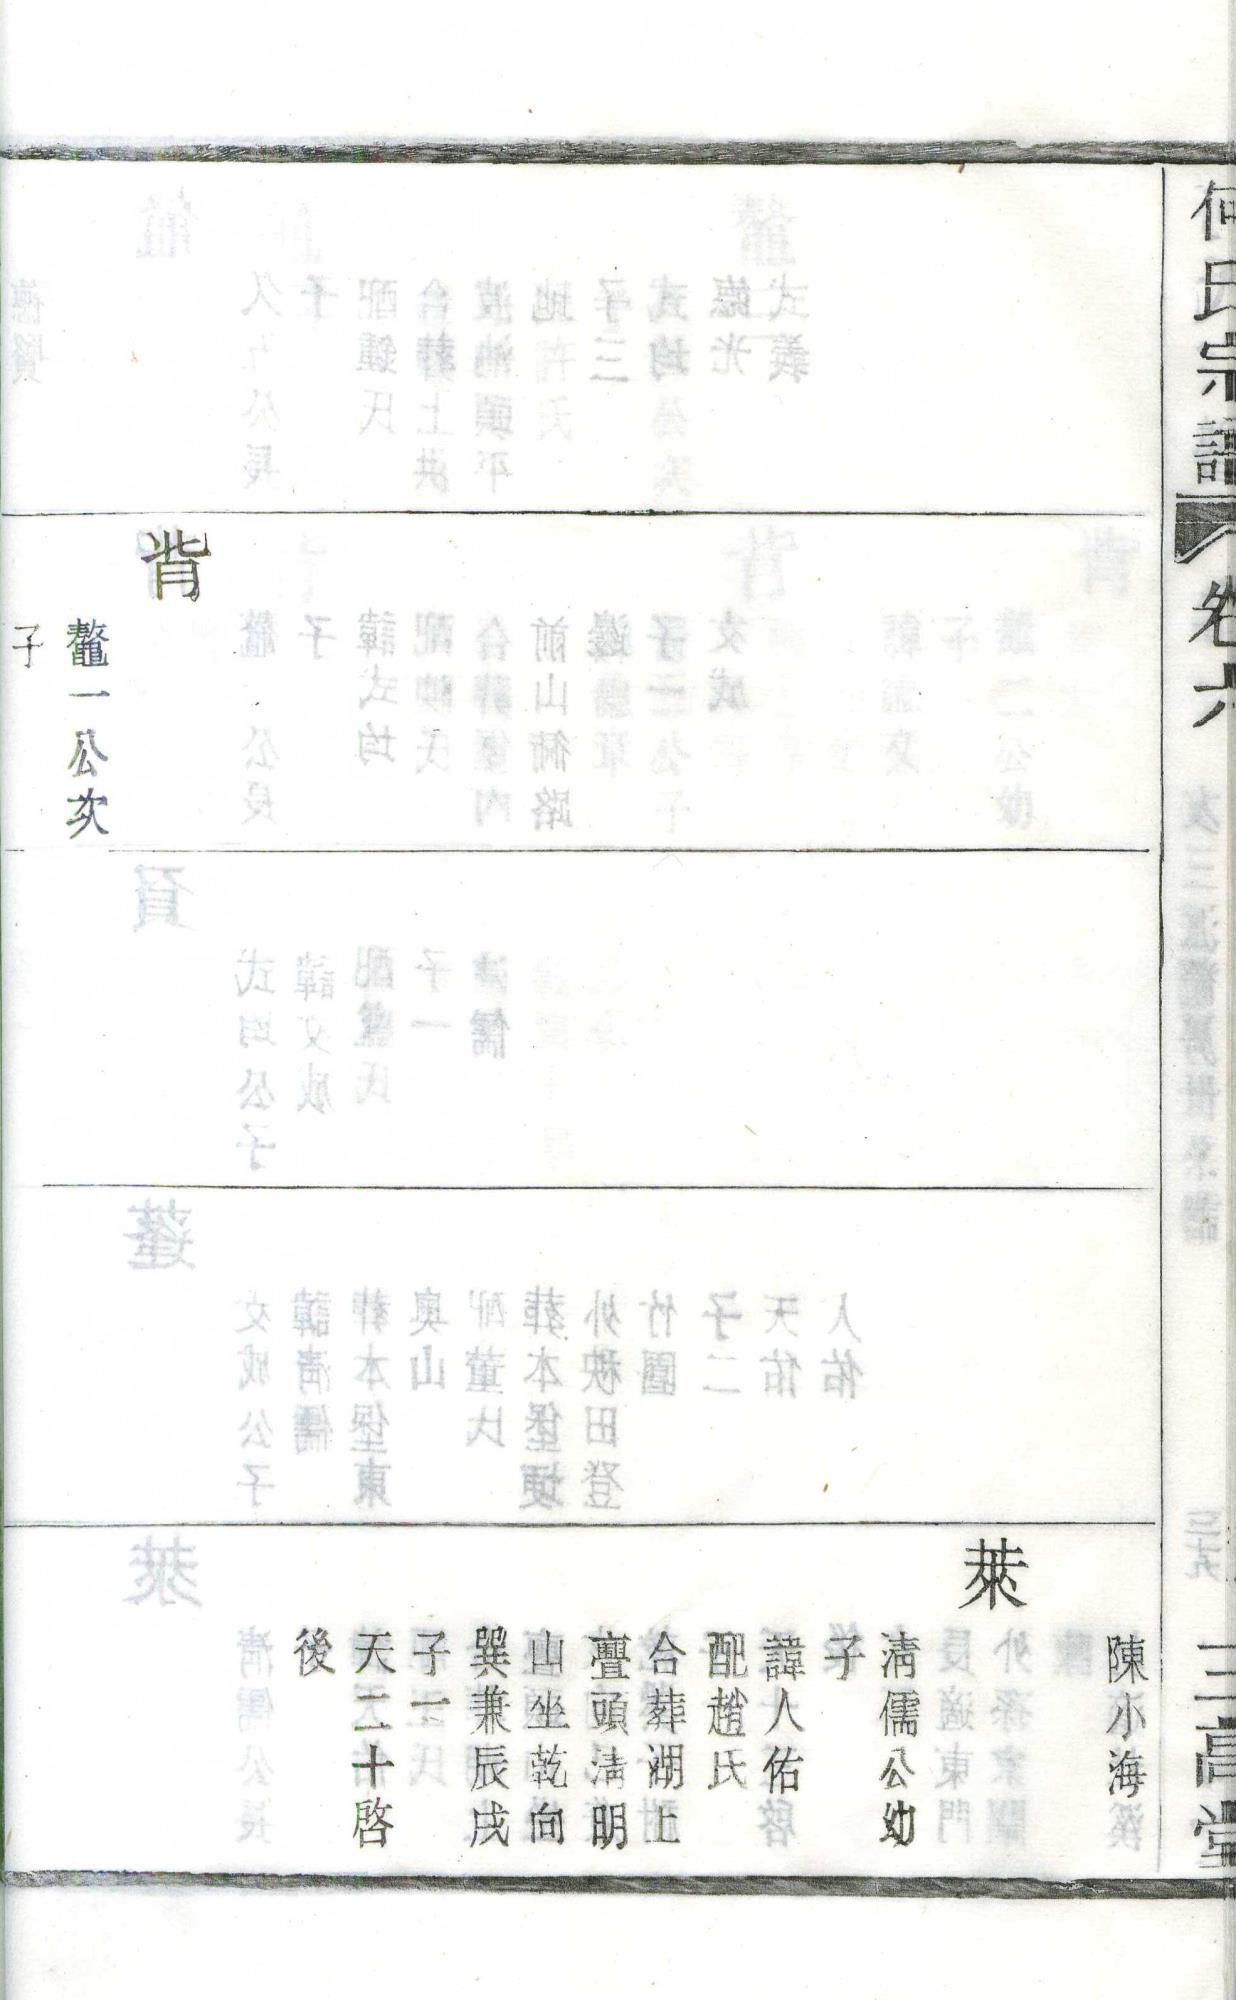 何氏宗譜
卷六
三高堂
背
鼇一公次
子
陳小海
萊
淸儒公幼
子
諱人佑
配趙氏
合葬湖上
亹頭淸明
山坐乾向
巽兼辰戌
子一
天二十啓
後